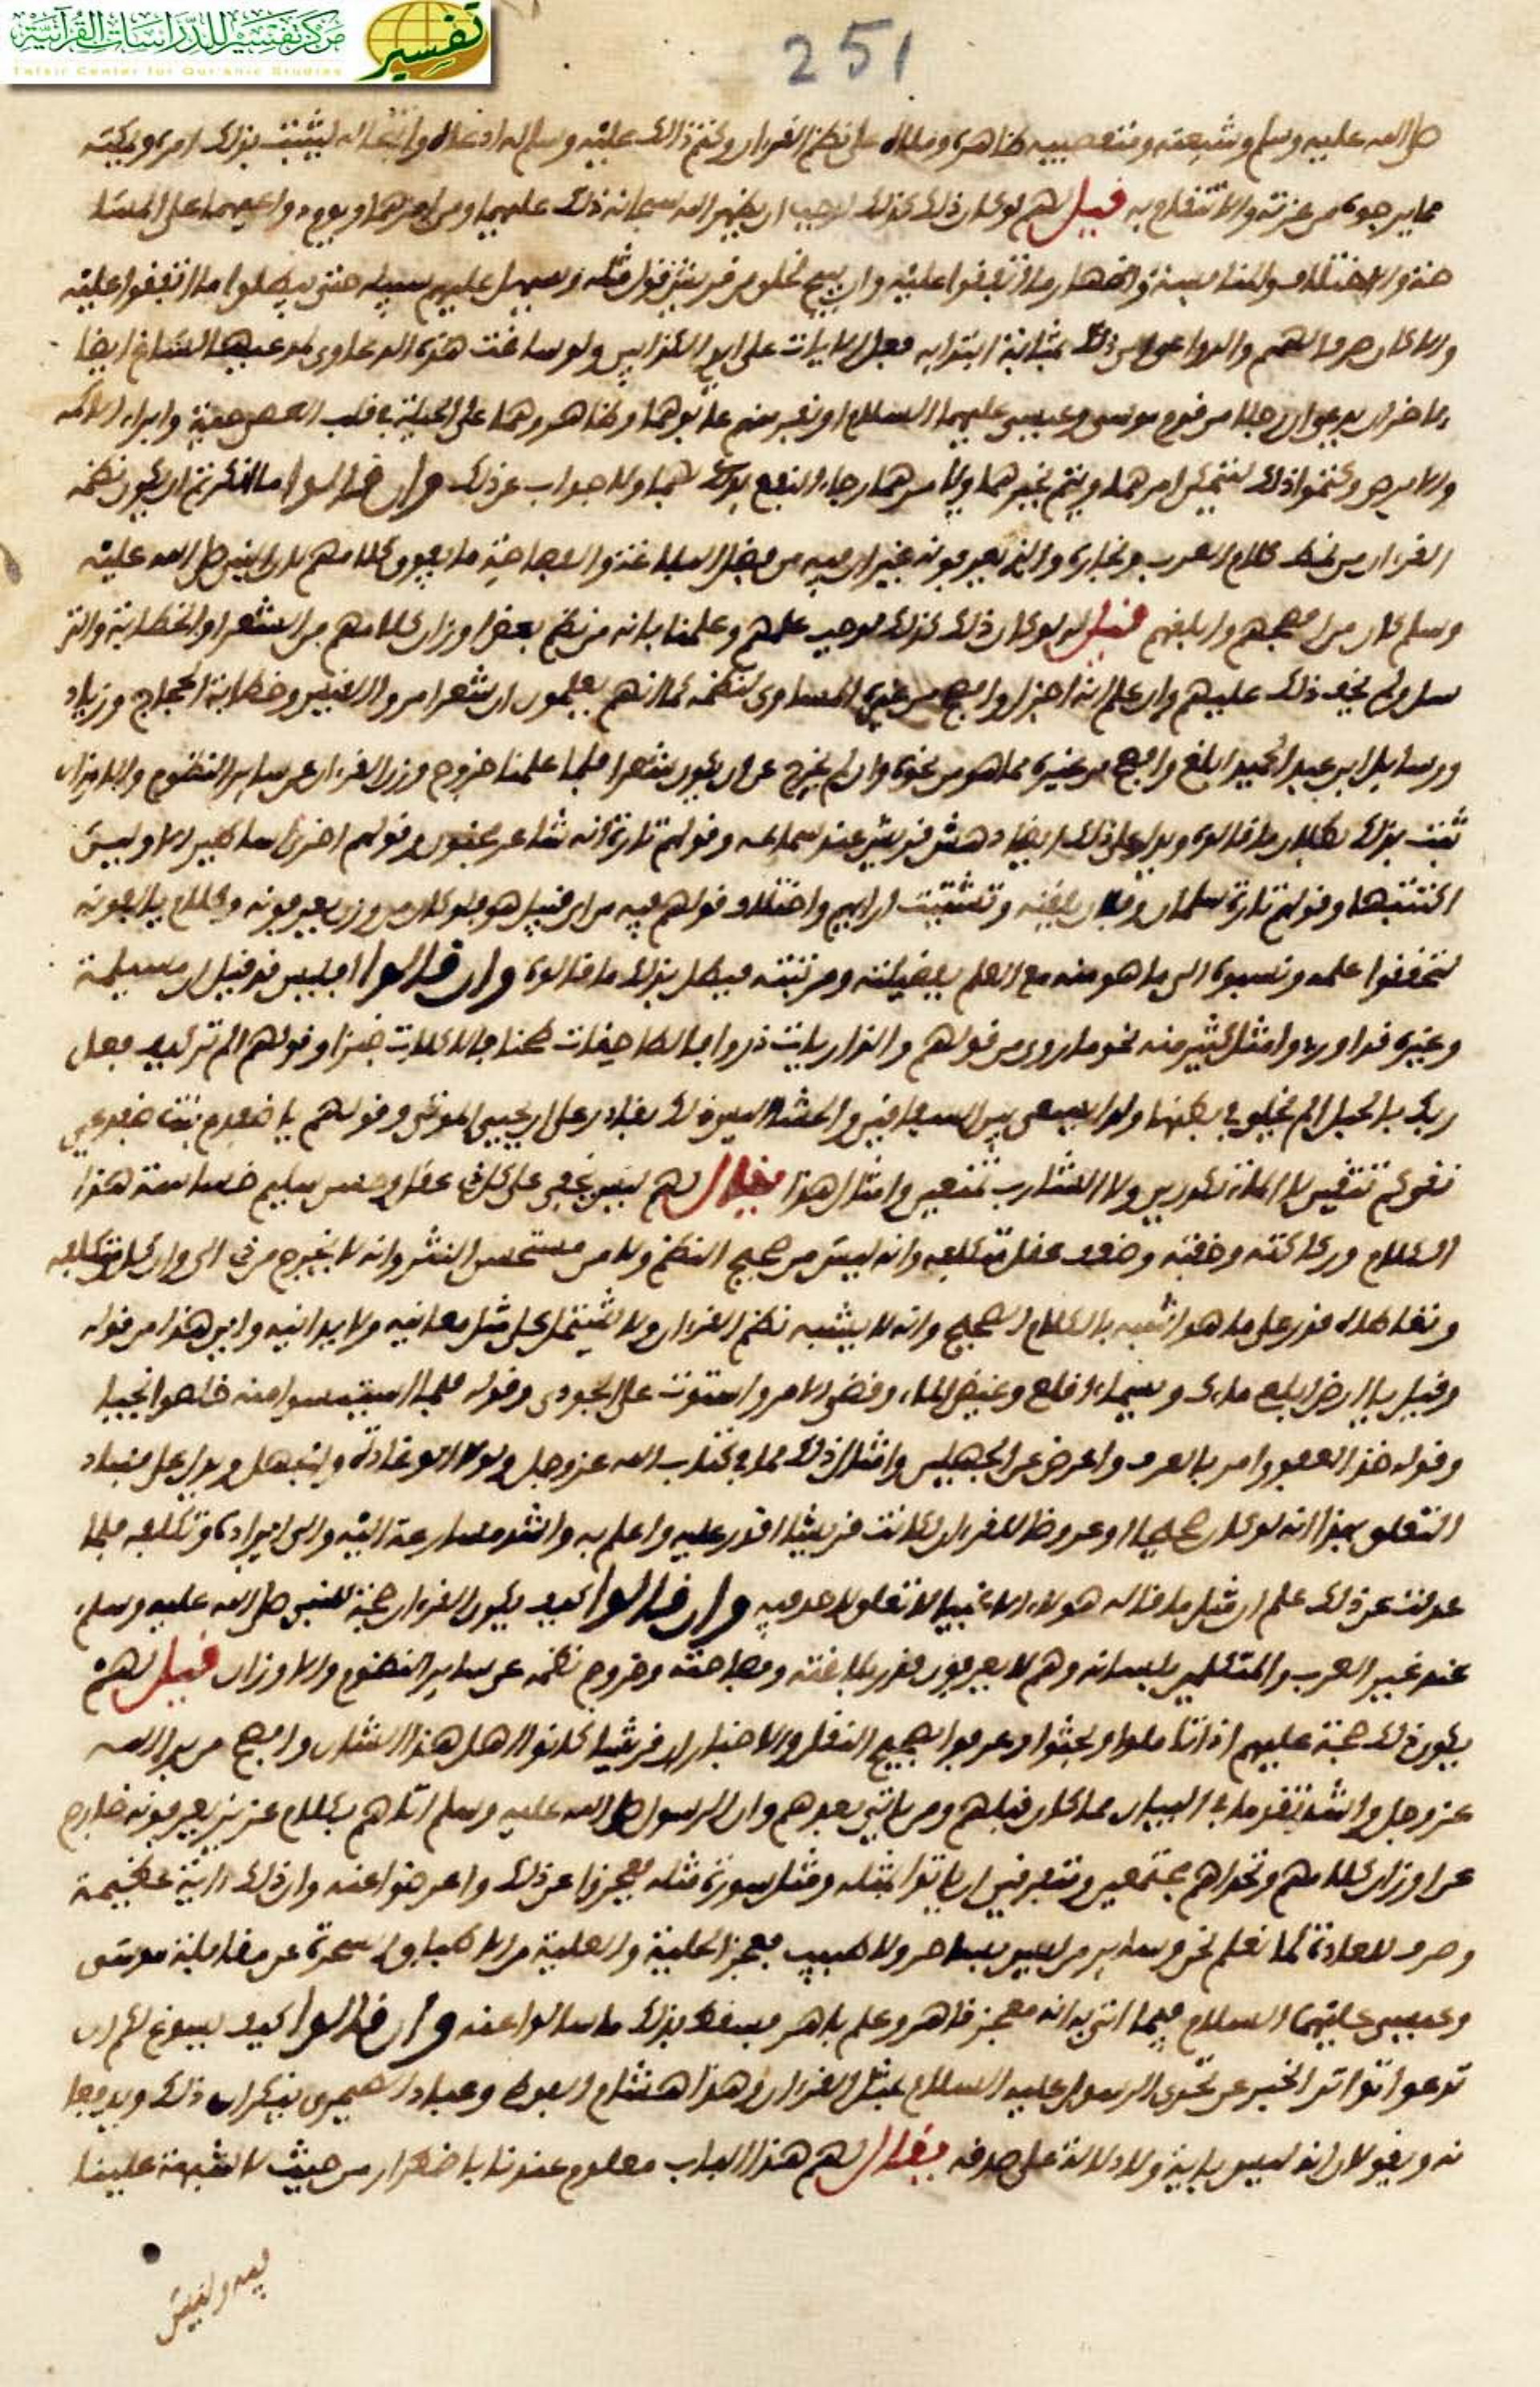 مركز تفسير للدراسات القرآنية
Tafsir Center for Qur'anic Studies
تفسير
251
صلى الله عليه وسلم وشيعته ومتعصبيه ظاهره على نظم القرءان وكتم ذالك عليه وسلم له ادعاه وانتحاله ليثبت بذلك امره
مما يرجوه من عزته والانتفاع به قيل لهم لو كان ذلك كذلك لوجب ان يظهر الله سبحانه ذلك عليهما ومن امرهما
والاختلاف والمنابسة واظهار ما اتفقوا عليه وان يبيح لخلق من قريش قول مثله ويسهل عليهم سبيله حتى يبطلوا ما اتفقوا عليه
والا كان صرف الهمم والدواعي عن ذلك بمثابة ابتدايه فعل الايات على ايدي الكذابين ولو ساغت هذه الدعاوى لمدعيها لساغ ايضا
ان يدعي ان رجلا من قوم موسى وعيسى عليهما السلام او نفر منهم عاونوهما وظاهروهما على الحيلة في قلب العصى حية وابراء الاكمه
والابرص وكتموا ذلك ليتمكن امرهما ويتم تخبرهما رجاء النفع بذلك لهما ولا جواب عن ذلك وان قالوا ما انكرتم ان يكون نظم
القرءان من نمط كلام العرب ونجاره والذي يعرفونه غير ان فيه من فضل البلاغة والفصاحة ما يفوق كلامهم لان النبي صلى الله عليه
وسلم كان من افصحهم وابلغهم قيل لو كان ذلك كذلك لوجب علمهم وعلمنا بانه من نظم بعض اوزان كلامهم من الشعر او الخطابة والتر
سل ولم يخف ذلك عليهم وان علم انه اجزل وافصح من غيره المساوي لنظمه كما انهم يعلمون ان شعر امرؤ القيس وخطابة الحجاج وزياد
ورسايل ابن عبد الحميد ابلغ وافصح من غيره مما هو من نحوه وان لم يخرج عن ان يكون شعرا فلما علمنا خروج وزن القرءان عن ساير النظوم والاوزان
ثبت بذلك بطلان ما قالوه ويدل على ذلك ايضا دهش قريش عند سماعه وقولهم تارة انه شاعر مجنون وقولهم اخرى اساطير الاولين
اكتتبها وقولهم تارة سلمان يلقنه وتشتيت ارايهم واختلاف قولهم فيه من اي قبيل هو فلو كان من وزن يعرفونه وكلام يالفونه
لتحققوا علمه ونسبوه الى ما هو منه مع العلم بفضيلته ومرتبته فبطل بذلك ما قالوه وان قالوا افليس قد قيل ان مسيلمة
وغيره قد اوردوا مثل كثير منه نحو ما روي من قولهم والذاريات ذروا فالطاحنات طحنا فالاكلات خبزا وقولهم الم تر كيف فعل
ربك بالحبلى الم يخلق في بطنها ولدا يسعى بين السفاق والحشا اليس ذلك بقادر على ان يحيي الموتى وقولهم يا ضفدع بنت ضفدعين
نقي كم تنقين لا الماء تكدرين ولا الشارب تمنعين وامثال هذا يقال لهم ليس يخفى على كل ذي عقل وحس سليم خساسة هذا
الكلام وركاكته وخفته وضعف عقل متكلفه وانه ليس من صحيح النظم ولا من مستحسن النثر وانه لا يخرج من ذي ال وان كان متكلفه
ومتعاطاه قدر على ما هو اشبه بالكلام الصحيح وانه لا يشبه نظم القرءان ولا يشتمل على مثل معانيه ولا يدانيه واين هذا من قوله
وقيل يا ارض ابلعي ماءك ويسماء اقلعي وغيض الماء وقضي الامر واستوت على الجودي وقوله فلما استيئسوا منه خلصوا نجيا
وقوله خذ العفو وامر بالعرف واعرض عن الجهلين وامثال ذلك مما في كتاب الله عز وجل ويدل على فساد
التعلق بهذا انه لو كان صحيحا او عروضا للقرءان لكانت قريش اقدر عليه واعلم به واشد مسارعة اليه والى ايراده وتكلفه فلما
عدلت عن ذلك علم ان مثل ما قاله هولاء الاغبيا لا تعلق لاحد فيه وان قالوا كيف يكون القرءان حجة للنبي صلى الله عليه وسلم
عند غير العرب والمتكلمين بلسانه وهم لا يعرفون قدر بلاغته وفصاحته وخروج نظمه عن ساير النظوم والاوزان قيل لهم
يكون ذلك حجة عليهم اذا تاملوا وبحثوا وعرفوا بصحيح النقل والاخبار ان قريشا كانوا اهل هذا الشان وافصح من برا الله
عز وجل واشد تقدما في البيان مما كان قبلهم ومن ياتي بعدهم وان الرسول صلى الله عليه وسلم اتاهم بكلام عزيز يعرفونه خارج
عن اوزان كلامهم وتحداهم مجتمعين ومتفرقين ان ياتوا بمثله ومثل سورة مثله فعجزوا عن ذلك واعرضوا عنه وان ذلك ءاية عظيمة
وخرق للعادة كما نعلم نحن وساير من ليس بساحر ولا طبيب بعجز الجلية والعلية من الاطباء والسحرة عن مقابلة موسى
وعيسى عليهما السلام فيما اتى به انه معجز قاهر وعلم باهر فسقط بذلك ما سالوا عنه وان قالوا كيف يسوغ لكم ان
تدعوا تواتر الخبر عن تحدي الرسول عليه السلام بمثل القرءان وهذا هشام الفوطي وعباد الصيمري ينكران ذلك ويدفعا
نه ويقولان انه ليس باية ولا دلالة على صدقه يقال لهم هذا الباب معلوم عندنا باضطرار من حيث لا شبهة علينا
فيه وليس